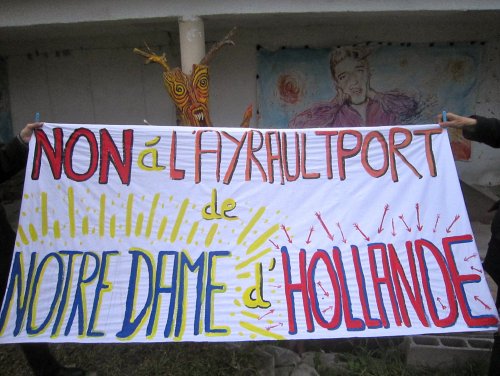 NON á L'AYRAULTPORT
de
NOTRE DAME d'HOLLANDE